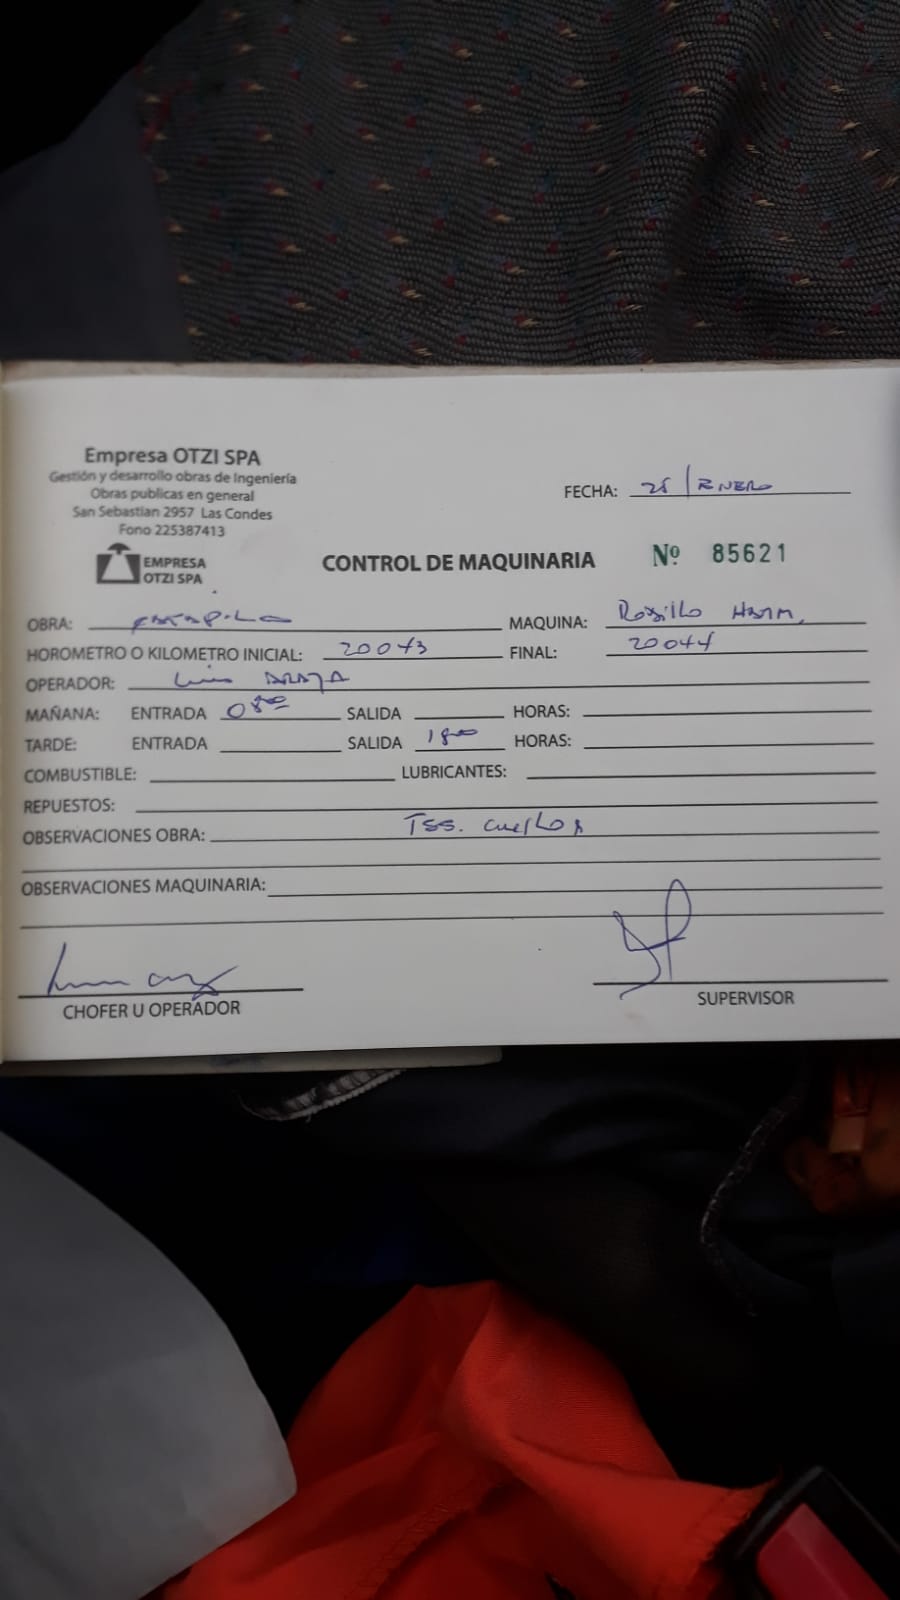 Empresa OTZI SPA
Gestión y desarrollo obras de Ingeniería
Obras publicas en general
San Sebastian 2957 Las Condes
Fono 225387413
EMPRESA
OTZI SPA
FECHA: / ENERO
CONTROL DE MAQUINARIA Nº 85621
OBRA: MAQUINA: Rodillo Hamm.
HOROMETRO O KILOMETRO INICIAL: 20043 FINAL: 20044
OPERADOR: Luis ARAYA
MAÑANA: ENTRADA 0800 SALIDA HORAS:
TARDE: ENTRADA SALIDA 1800 HORAS:
COMBUSTIBLE: LUBRICANTES:
REPUESTOS:
OBSERVACIONES OBRA: Tss.
OBSERVACIONES MAQUINARIA:
CHOFER U OPERADOR SUPERVISOR